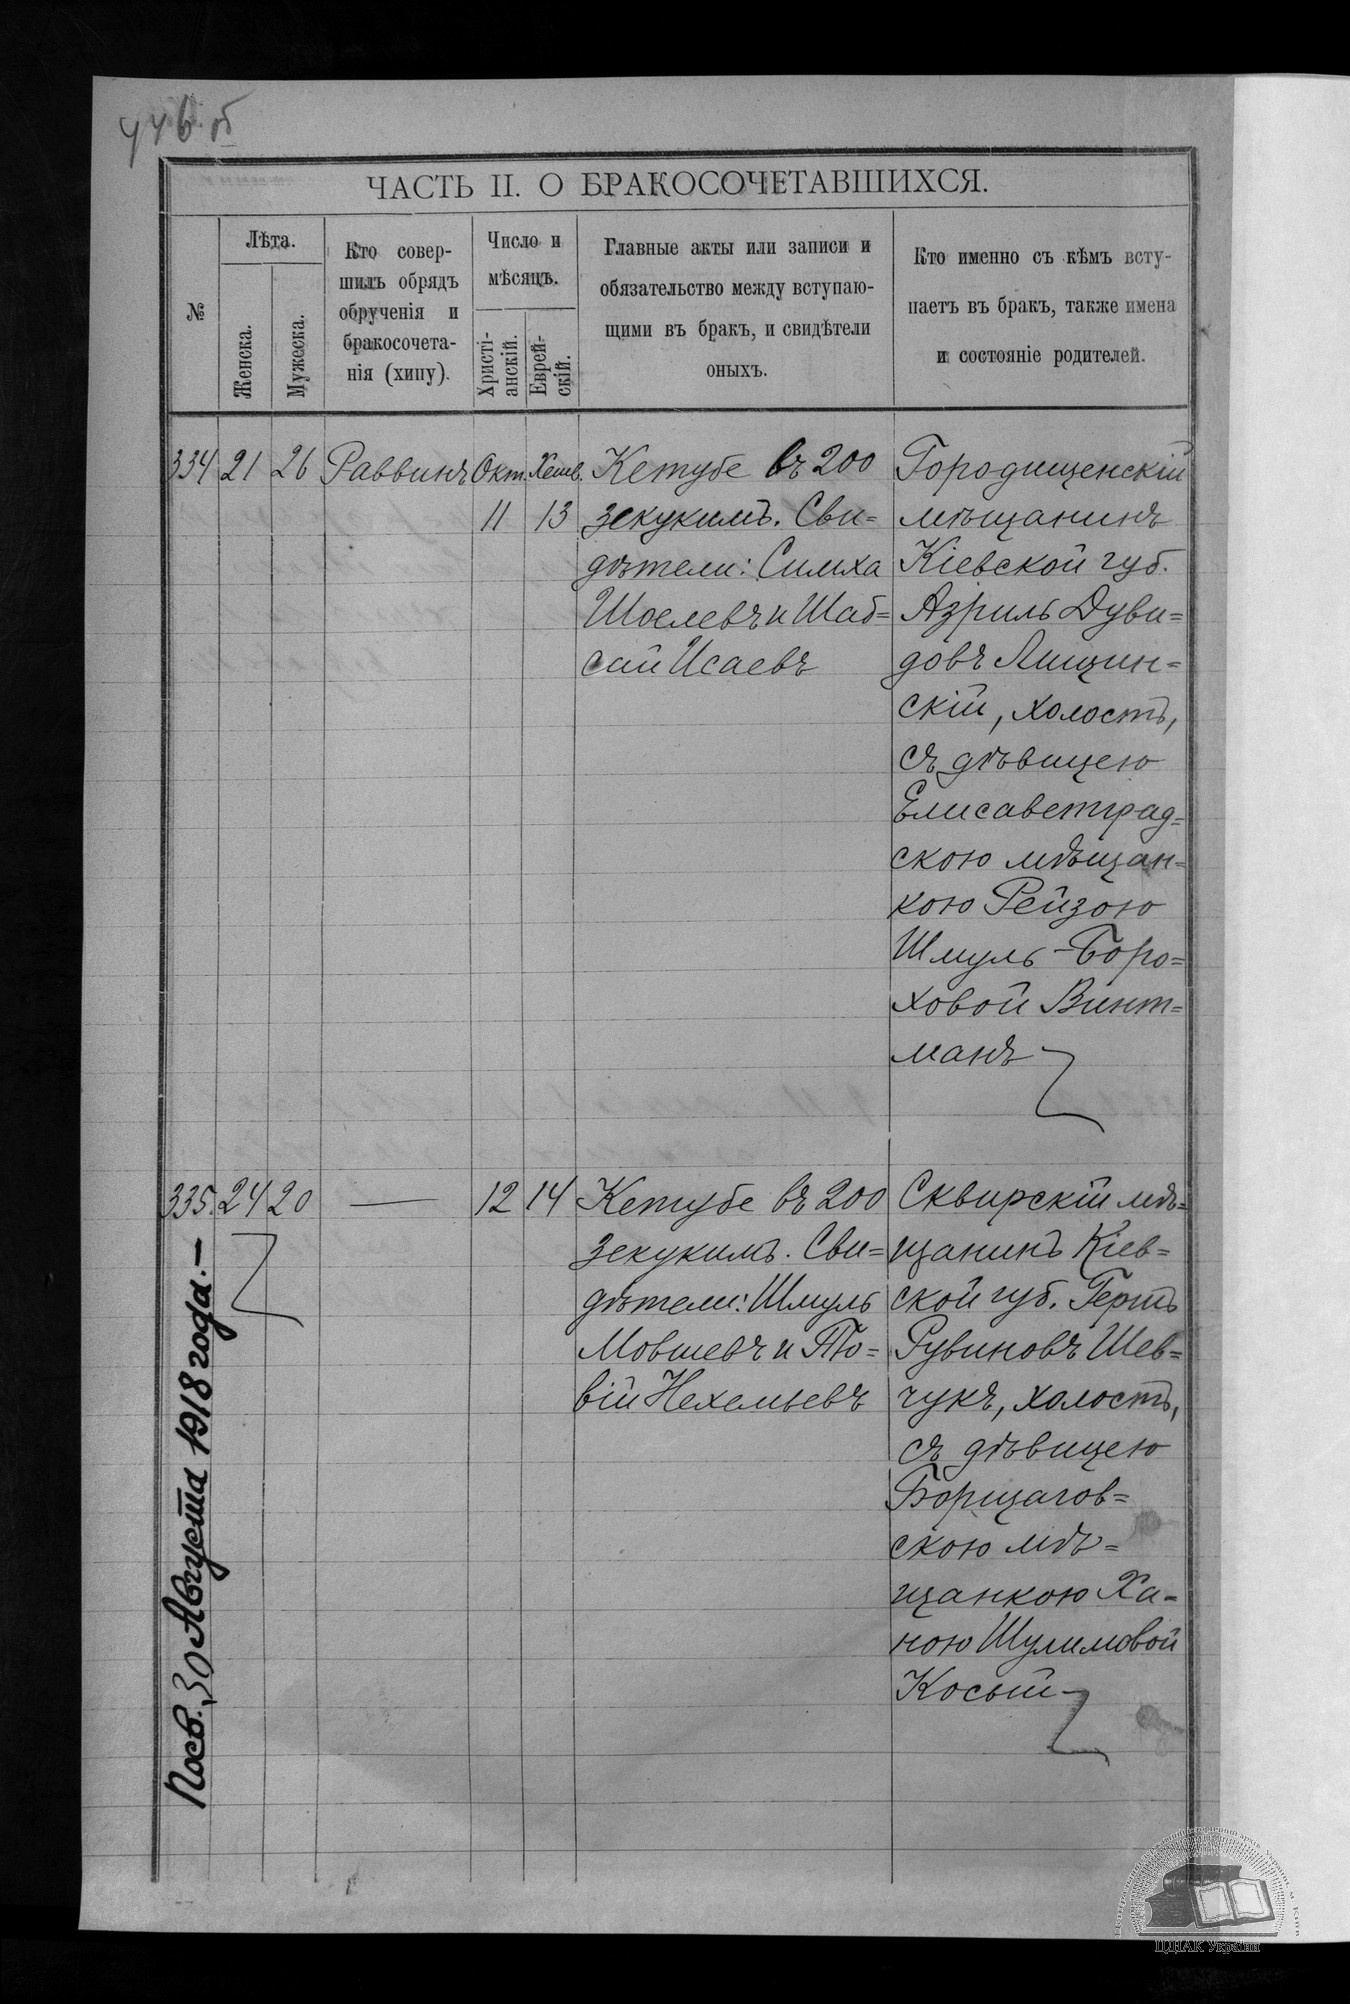 446 об
ЧАСТЬ II. О БРАКОСОЧЕТАВШИХСЯ.
№
Лѣта.
Женска.
Мужеска.
Кто совер-
шилъ обрядъ
обрученія и
бракосочета-
нія (хипу).
Число и
мѣсяцъ.
Христі-
анскій.
Еврей-
скій.
Главные акты или записи и
обязательство между вступаю-
щими въ бракъ, и свидѣтели
оныхъ.
Кто именно съ кѣмъ всту-
паетъ въ бракъ, также имена
и состояніе родителей.
334 21 26 Раввинъ Окт. Хешв.
11 13
Кетубе въ 200
зекукимъ. Сви=
дѣтели: Симха
Шоелевъ и Шаб=
сай Исаевъ
Городищенскій
мѣщанинъ
Кіевской губ.
Азриль Дуви=
довъ Лищин=
скій, холостъ,
съ дѣвицею
Елисаветград=
скою мѣщан=
кою Рейзою
Шмуль-Боро=
ховой Винт=
манъ
335. 24 20 — 12 14
Кетубе въ 200
зекукимъ. Сви=
дѣтели: Шмуль
Мовшевъ и То=
вій Нехемьевъ
Сквирскій мѣ=
щанинъ Кіев=
ской губ. Герш
Рувиновъ Шев=
чукъ, холостъ,
съ дѣвицею
Борщагов=
скою мѣ=
щанкою Ха-
ною Шулимовой
Косый
Посв. 30 Августа 1918 года.—
ЦДІАК України